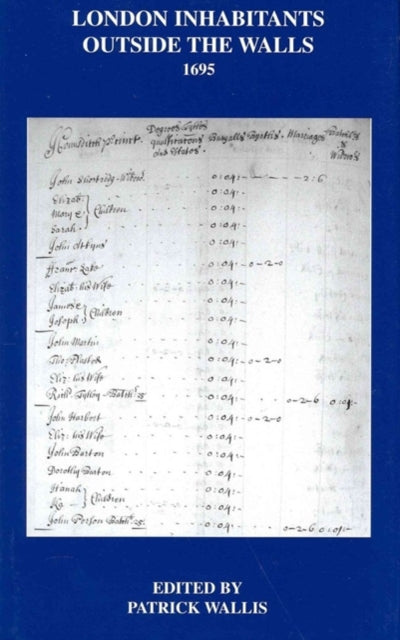 LONDON INHABITANTS
OUTSIDE THE WALLS
1695
Degrees Titles
Houndsditch Precinct. qualifications Burialls Births. Marriages Batchelrs
and Estates. & Widowrs
John - Widowr 0:04:- - - - 2:6
Elizab: 0:04:-
Mary } Children 0:04:-
Sarah 0:04:-
John 0:04:-
0:04:- 0-2-0
Elizab: his Wife 0:04:-
James } Children 0:04:-
Joseph 0:04:-
John Martin 0:04:-
Tho: 0:04:- 0-2-0
Eliz: his Wife 0:04:-
Batchr 25 0:04:- 0-2-6 0:01:-
John Harbert 0:04:- 0-2-0
Eliz: his Wife 0:04:-
John Barton 0:04:-
Dorothy Barton 0:04:-
Hanah } Children 0:04:-
0:04:-
John Person Batchr 25: 0:04:- 0-2-6 0:01:-
EDITED BY
PATRICK WALLIS